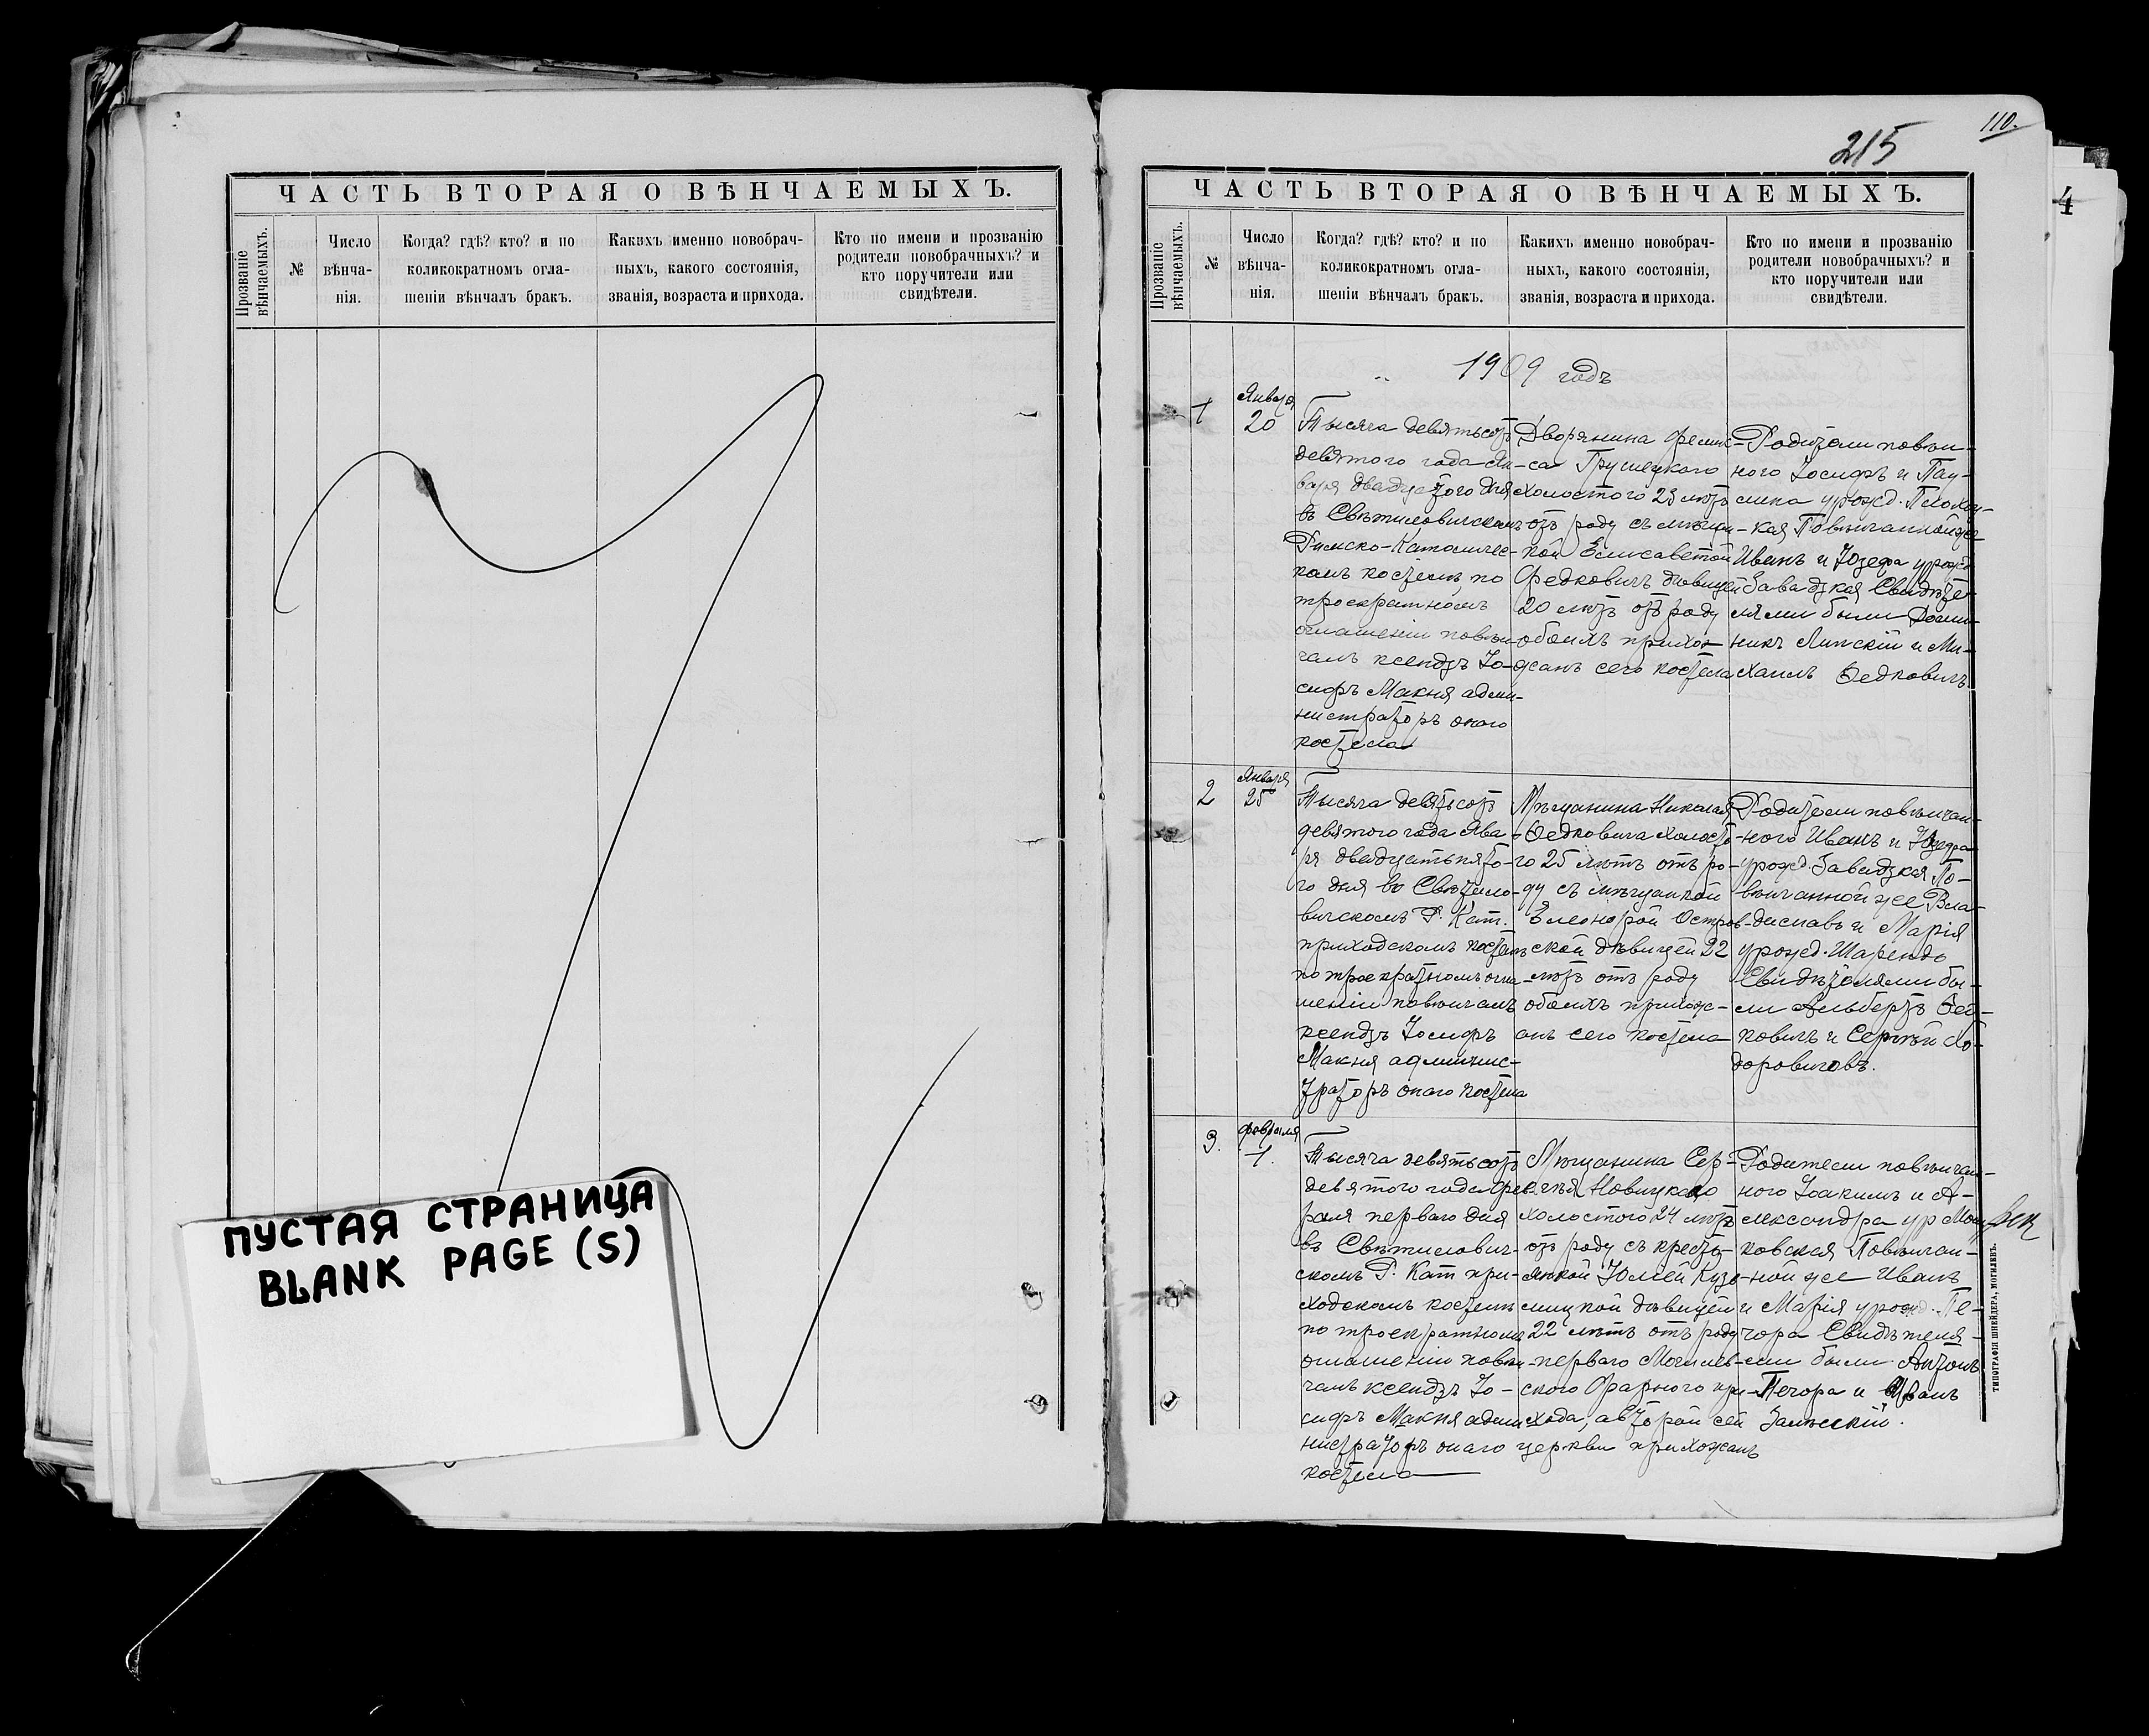 ЧАСТЬ ВТОРАЯ О ВѢНЧАЕМЫХЪ.
Прозваніе
вѣнчаемыхъ.
№
Число
вѣнча-
нія.
Когда? гдѣ? кто? и по
коликократномъ огла-
шеніи вѣнчалъ бракъ.
Какихъ именно новобрач-
ныхъ, какого состоянія,
званія, возраста и прихода.
Кто по имени и прозванію
родители новобрачныхъ? и
кто поручители или
свидѣтели.
ПУСТАЯ СТРАНИЦА
BLANK PAGE (S)
110.
215
4
ЧАСТЬ ВТОРАЯ О ВѢНЧАЕМЫХЪ.
Прозваніе
вѣнчаемыхъ.
№
Число
вѣнча-
нія.
Когда? гдѣ? кто? и по
коликократномъ огла-
шеніи вѣнчалъ бракъ.
Какихъ именно новобрач-
ныхъ, какого состоянія,
званія, возраста и прихода.
Кто по имени и прозванію
родители новобрачныхъ? и
кто поручители или
свидѣтели.
1909 годъ
1
Января
20
Тысяча девятьсотъ
девятого года Ян-
варя двадцатого дня
въ Свѣтиловичскомъ
Римско-Католичес-
комъ костелѣ, по
троекратномъ
оглашеніи повѣн-
чалъ ксендзъ Іо-
сифъ Макня адми-
нистраторъ онаго
костела
Дворянина Феликс-
са Грушецкого
холостого 23 лѣтъ
отъ роду съ мѣщан-
кой Елисаветой
Федковичъ дѣвицей
20 лѣтъ отъ роду
обоихъ прихо-
жанъ сего костела
Родители повѣн-
ного Іосифъ и Пау-
лина урожд. Плохоц-
кая Повѣнчанной же
Иванъ и Юзефа урожд
Завадзкая Свидѣте-
лями были Доми-
никъ Липскій и Ми-
хаилъ Федковичъ
2
Января
25
Тысяча девятьсотъ
девятого года Янва-
ря двадцатьпято-
го дня въ Свѣтило-
вичскомъ Р. Кат.
приходскомъ костелѣ
по троекратномъ огла-
шеніи повѣнчалъ
ксендзъ Іосифъ
Макня админис-
траторъ онаго костела
Мѣщанина Николая
Федковича холосто-
го 25 лѣтъ отъ ро-
ду съ мѣщанкой
Элеонорой Остров-
ской дѣвицей 22
лѣтъ отъ роду
обоихъ прихож-
анъ сего костела
Родители повѣнчан-
ного Иванъ и Юзефа
урожд. Завадзкая По-
вѣнчанной же Вла-
диславъ и Марія
урожд. Шарендо
Свидѣтелями бы-
ли Альбертъ Фед-
ковичъ и Сергѣй
доровичовъ.
3.
Февраля
1.
Тысяча девятьсотъ
девятого года Фев-
раля перваго дня
въ Свѣтилович-
скомъ Р. Кат при-
ходскомъ костелѣ
по троекратномъ
оглашеніи повѣн-
чалъ ксендзъ Іо-
сифъ Макня адми
нистраторъ онаго
костела
Мѣщанина Сер-
гѣя Новицкаго
холостого 24 лѣтъ
отъ роду съ кресть-
янкой Юліей Кузь-
мицкой дѣвицей
22 лѣтъ отъ роду
перваго Могилев-
ского Фарного при-
хода, а второй сей
церкви прихожанъ
Родители повѣнчан-
ного Іоакимъ и А-
лександра ур
ковская Повѣнчан-
ной же Иванъ
и Марія урожд. Пе-
чора Свидѣтеля-
ми были Антонъ
Печора и Иванъ
Залѣскій.
ТИПОГРАФІЯ ШНЕЙДЕРА, МОГИЛЕВЪ.